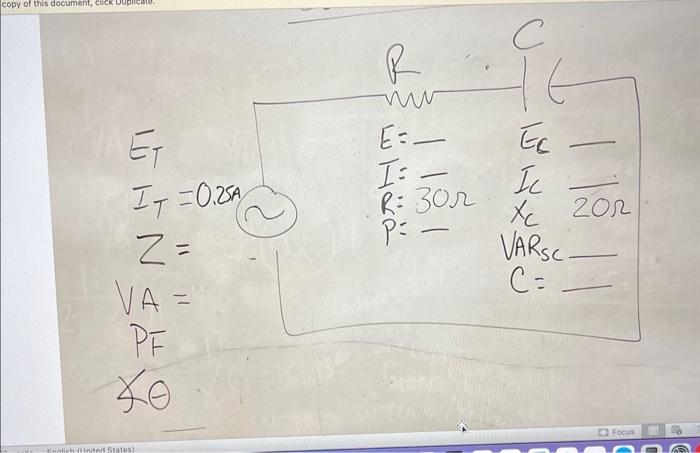 copy of this document, click Duplicate.
R
C
E_T
I_T = 0.25A
Z =
VA =
PF
∡θ
E= __
I= __
R: 30Ω
P= __
E_C __
I_C __
X_C 20Ω
VARs_C __
C= __
Focus
English (United States)